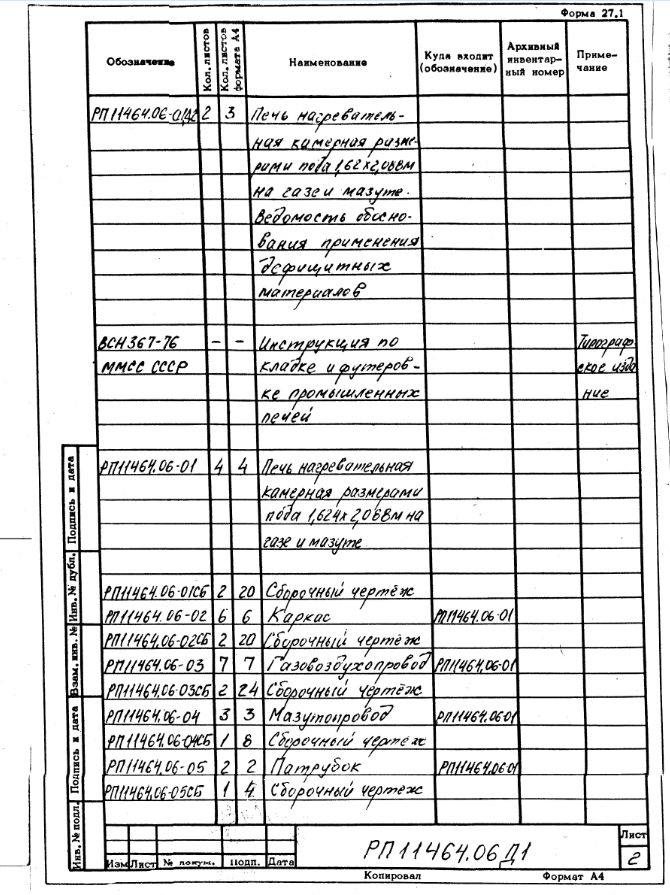 Форма 27.1
Обозначение Кол. листов Кол. листов формата А4 Наименование Куда входит (обозначение) Архивный инвентарный номер Примечание
РП11464.06-0Д2 2 3 Печь нагреватель-
ная камерная разме-
рами пода 1,62х2,088м
на газе и мазуте.
Ведомость обосно-
вания применения
дефицитных
материалов
ВСН367-76 - - Инструкция по Типограф-
ММСС СССР кладке и футеров- ское изда
ке промышленных ние
печей
РП11464.06-01 4 4 Печь нагревательная
камерная размерами
пода 1,624х2,088м на
газе и мазуте
РП11464.06-01СБ 2 20 Сборочный чертёж
РП11464.06-02 6 6 Каркас РП11464.06-01
РП11464.06-02СБ 2 20 Сборочный чертёж
РП11464.06-03 7 7 Газовоздухопровод РП11464.06-01
РП11464.06-03СБ 2 24 Сборочный чертёж
РП11464.06-04 3 3 Мазутопровод РП11464.0601
РП11464.06-04СБ 1 8 Сборочный чертёж
РП11464.06-05 2 2 Патрубок РП11464.0601
РП11464.06-05СБ 1 4 Сборочный чертёж
Инв. № подл. Подпись и дата Взам. инв. № Инв. № дубл. Подпись и дата
Изм Лист № докум. Подп. Дата
РП11464.06Д1
Лист
2
Копировал Формат А4